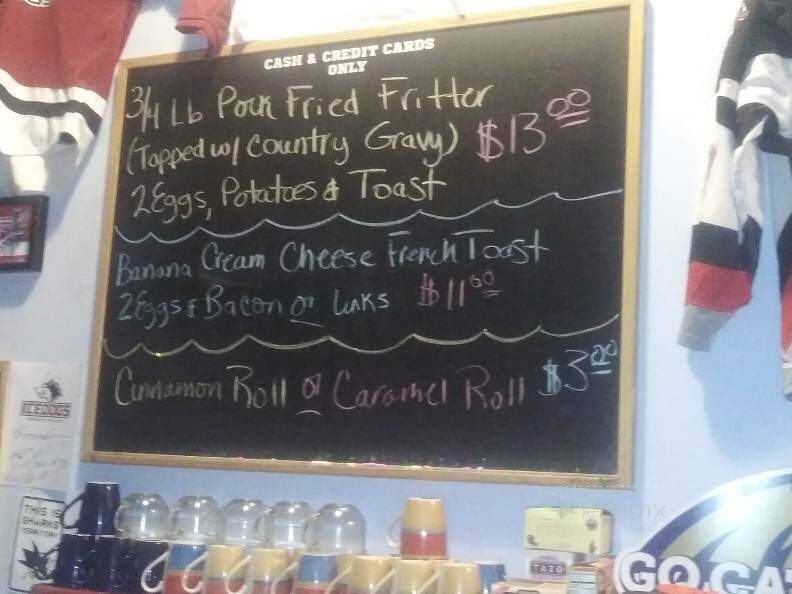 CASH & CREDIT CARDS
ONLY
3/4 Lb Pork Fried Fritter
(Topped w/ Country Gravy) $13.00
2 Eggs, Potatoes & Toast
Banana Cream Cheese French Toast
2 Eggs & Bacon or Links $11.00
Cinnamon Roll or Caramel Roll $3.00
ICEDOGS
THIS IS
SHARKS
TERRITORY
TAZO
GO GA